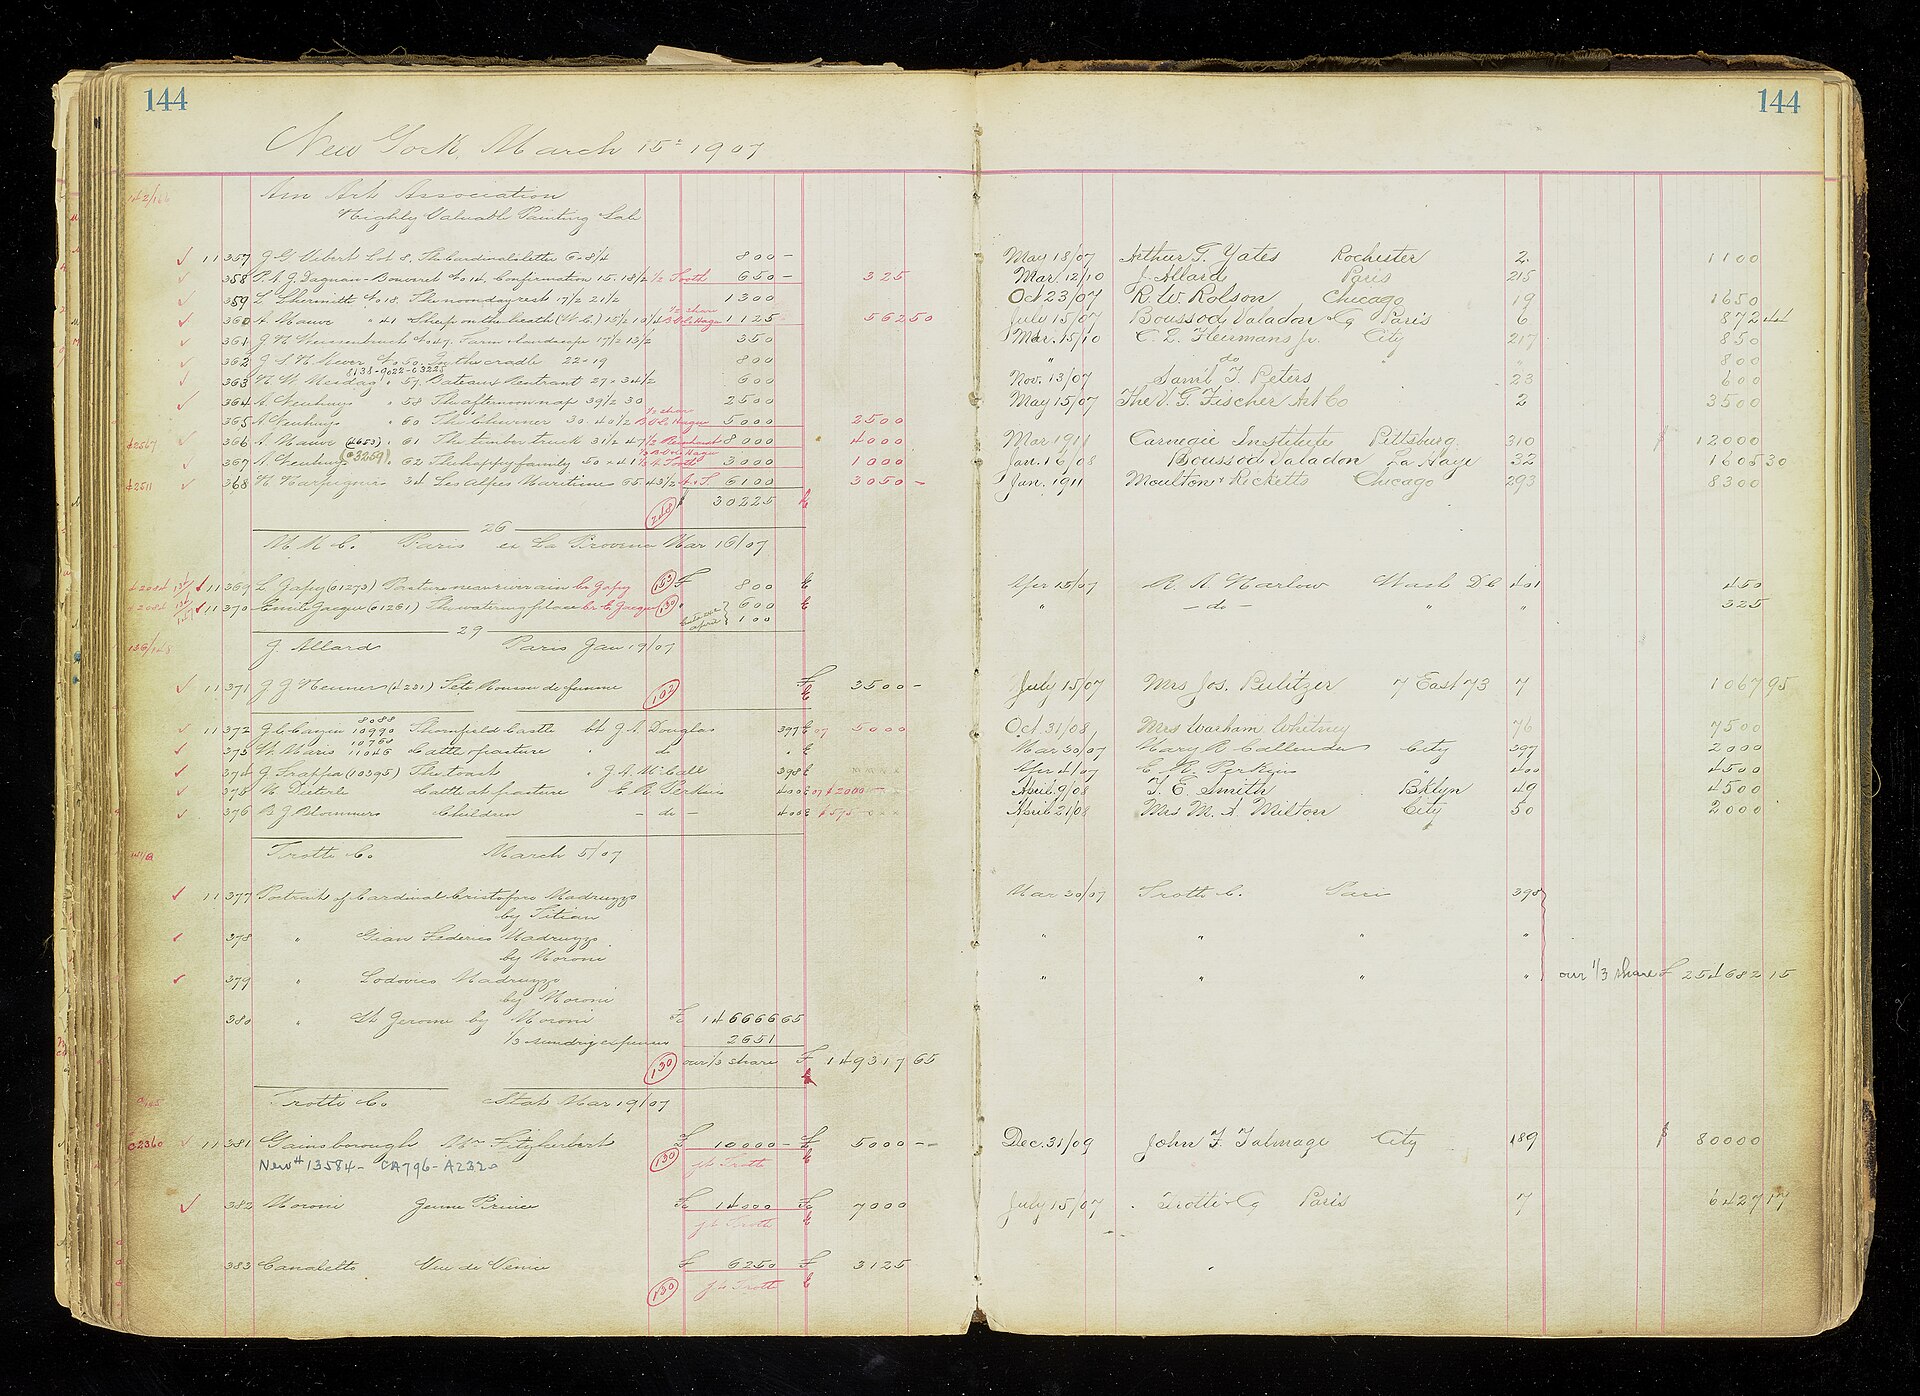 144
144
New York, March 15th 1907
142/166
Am Art Association
Highly Valuable Painting Sale
11357 J G Vibert Lot 8. The Cardinal's letter 6 × 8 1/4 800 – May 18/07 Arthur G. Yates Rochester 2 1100
358 P. A. J. Dagnan-Bouveret No 14. Confirmation 15. 18/2 1/2 Tooth 650 – 325 Mar. 12/10 J. Allard Paris 215
359 L. Lhermitte No 18. The noonday rest 17/2 21/2 1300 Oct 23/07 R. W. Rolson Chicago 19 1650
360 A. Mauve " 41 Sheep on the heath (W.C.) 15/2 10/4 1/2 share B V La Hague 1125 56250 July 15/07 Boussod Valadon & Co Paris 6 87244
361 J H Weissenbruch No 47. Farm & landscape 17/2 13/2 350 Mar. 15/10 C. L. Fleurmans Jr. City 217 850
362 No 50. In the cradle 22 × 19 800 " do " " 800
8138-9022-
363 H W Mesdag " 57. Bateaux Rentrant 27 × 34/2 600 Nov. 13/07 Saml T. Peters 23 600
364 A. Neuhuys " 58 The afternoon nap 39/2 30 2500 May 15/07 The V. G. Fischer Art Co 2 3500
365 A Neuhuys " 60 The Churner 30. 40/2 1/2 share B V La Hague 5000 2500
42567 366 A. Mauve (4653) " 61 The timber truck 31/2 47/2 Reinhardt 8000 4000 Mar 1911 Carnegie Institute Pittsburg 310 $ 12000
367 A. Neuhuys " 62 The happy family 50 × 41 1/3 B V La Hague 1/3 A. Tooth 3000 1000 Jan. 16/08 Boussod Valadon La Haye 32 160530
42511 368 H. Harpignies 34 Les Alpes Maritimes 65 43/2 A. T 6100 3050 – Jan. 1911 Moulton & Ricketts Chicago 293 8300
$ 30225
26
M K C. Paris ex La Provence Mar 16/07
11369 L. Gapy (61273) Cr Gapy 153 F 800 Apr 15/07 R. A. Harlow Wash DC 401 450
11370 Emile Jacque (61261) The watering place Cr E. Jacque 130 " 600 " – do – " " 325
100
29
136/148
J Allard Paris Jan 19/07
11371 J J Henner (4231) Tete Rousse de femme 102 Fc 3500 – July 15/07 Mrs Jos. Pulitzer 7 East 73 7 106795
11372 J. C. Cazin 8088 10990 Thornfield Castle bt J. A. Douglas 397 5000 Oct. 31/08 Mrs Warham Whitney 76 7500
373 W. Maris 10760 11046 Cattle & pasture " do " Mar 30/07 Mary R. Callender City 397 2000
374 J. Frappa (10395) The toast " J. A. McCall 398 Apr 4/07 E. R. Perkins " 400 4500
375 W. Dieterle Cattle at pasture E. R. Perkins 400 $2000 April 9/08 T. E. Smith Bklyn 49 4500
376 B J Blommers Children – do – 400 $575 April 21/08 Mrs M. A. Milton City 50 2000
Trotti Co. March 5/07
11377 Portrait of Cardinal Cristoforo Madruzzo Mar 30/07 Trotti C. Paris 398
by Titian
378 " Gian Federico Madruzzo " " " "
by Moroni
379 " Lodovico Madruzzo " " " " our 1/3 share F 25468215
by Moroni
380 " St Jerome by Moroni Fc 14666665
1/3 sundry expenses 2651
130 our 1/3 share F 14931765
Trotti Co. Stat Mar 19/07
C2360 11381 Gainsborough Mrs Fitzherbert £ 10000 – £ 5000 –– Dec. 31/09 John F. Talmage City 189 $ 80000
New # 13584 – CA796 – A2320 130 jt Trotti
382 Moroni Jeune Prince Fc 14000 Fc 7000 July 15/07 Trotti & Co Paris 7 642717
jt Trotti
383 Canaletto Vue de Venise F 6250 F 3125
130 jt Trotti